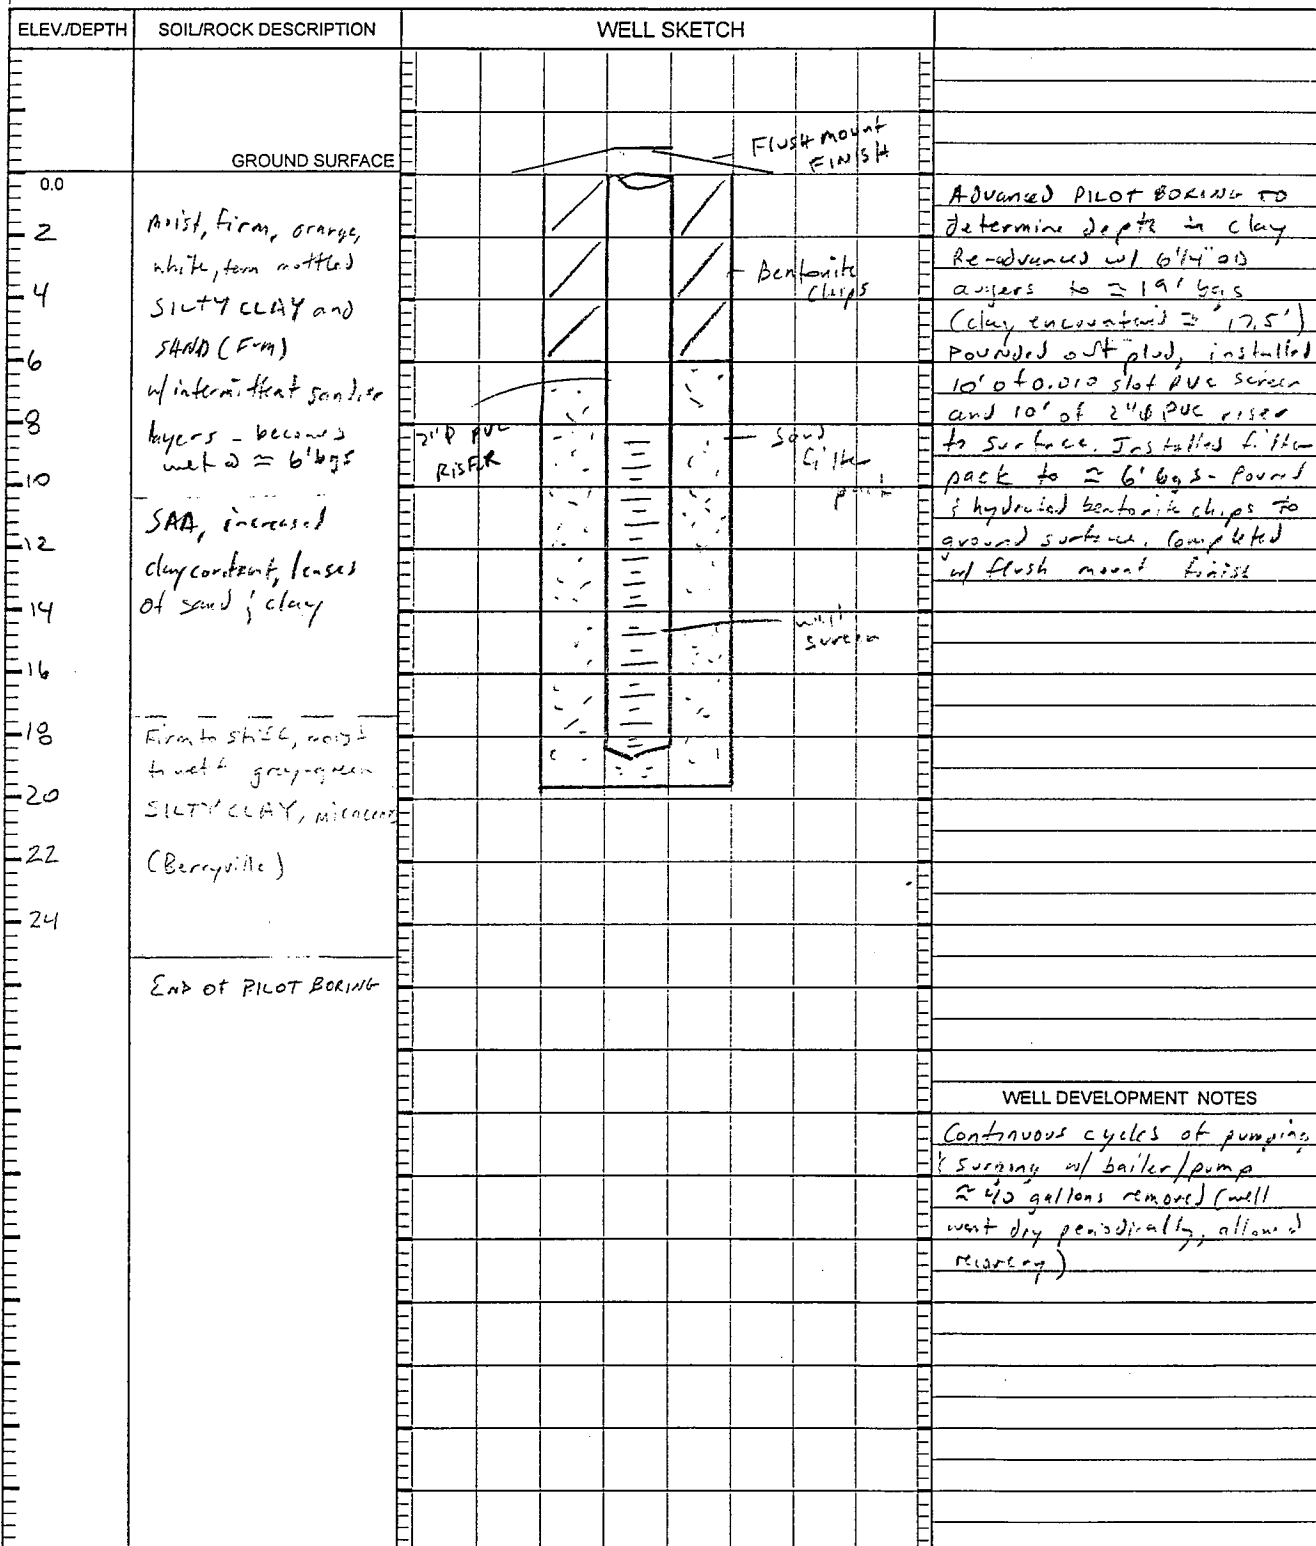 ELEV./DEPTH
SOIL/ROCK DESCRIPTION
WELL SKETCH
GROUND SURFACE
Flush mount
FINISH
0.0
2
4
6
8
10
12
14
16
18
20
22
24
Moist, firm, orange,
white, tan mottled
SILTY CLAY and
SAND (F-m)
w/ intermittent sandier
layers - becomes
wet @ ≈ 6' bgs
SAA, increased
clay content, lenses
of sand & clay
Firm to stiff, moist
to wet grey-green
SILTY CLAY, micaceous
(Berryville)
END OF PILOT BORING
Bentonite
Chips
2"Ø PVC
RISER
Sand
filter
pack
well
screen
Advanced PILOT BORING TO
determine depth to clay
Re-advanced w/ 6 1/4" OD
augers to ≈ 19' bgs
(clay encountered ≈ 17.5')
Pounded out plug, installed
10' of 0.010 slot PVC screen
and 10' of 2"Ø PVC riser
to surface. Installed filter
pack to ≈ 6' bgs - Poured
& hydrated bentonite chips to
ground surface. Completed
w/ flush mount finish
WELL DEVELOPMENT NOTES
Continuous cycles of pumping
& surging w/ bailer/pump
≈ 40 gallons removed (well
went dry periodically, allowed
recovery)